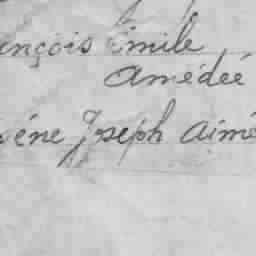 ençois Émile
Amédeé
ène Joseph Aimé